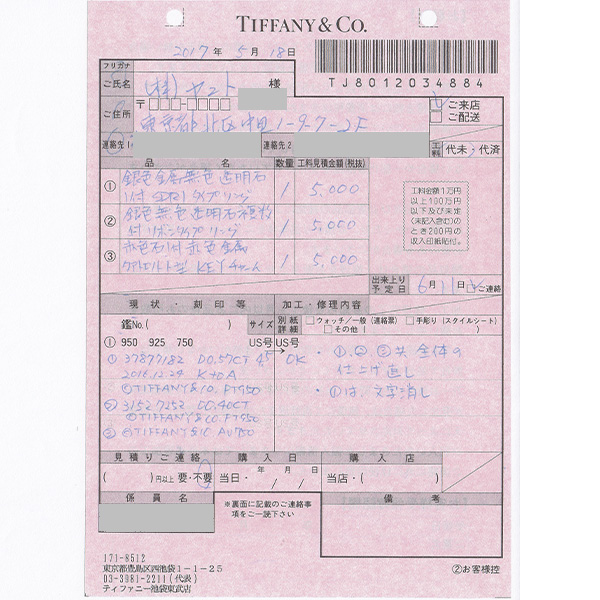 TIFFANY & CO.
2017 年 5 月 18 日
TJ8012034884
フリガナ
ご氏名 (株)ヤマト 様
ご来店
ご配送
ご住所 〒
東京都北区中里1-9-7-2F
連絡先1
連絡先2
工料 代未 代済
品 名 数量 工料見積金額(税抜)
① 銀色金属無色透明石
1付 SDR1タイプリング 1 5,000
② 銀色無色透明石複数
付リボンタイプリング 1 5,000
③ 赤色石付赤色金属
KEYチャーム 1 5,000
工料金額1万円
以上100万円
以下及び未定
(未記入含む)の
とき200円の
収入印紙貼付。
出来上り
予定日 6月11日 ご連絡
現状・刻印等 加工・修理内容
鑑No.( ) サイズ 別紙詳細 ウォッチ/一般(連絡票) 手彫り(スタイルシート)
その他( )
① 950 925 750 US号 US号
① 37877182 D0.57CT 4.5 → OK
2016.12.24 K+DA
©TIFFANY&CO. PT950
② 31527252 D0.40CT
©TIFFANY&CO. PT950
③ ©TIFFANY&CO AU750
・①、②、③共 全体の
仕上げ直し
・①は、文字消し
見積りご連絡 購入日 購入店
( )円以上 要・不要 当日・ 年 / 月 / 日 当店・( )
係員名
※裏面に記載のご連絡事
項をご一読下さい
備考
171-8512
東京都豊島区西池袋1-1-25
03-3981-2211(代表)
ティファニー池袋東武店
②お客様控